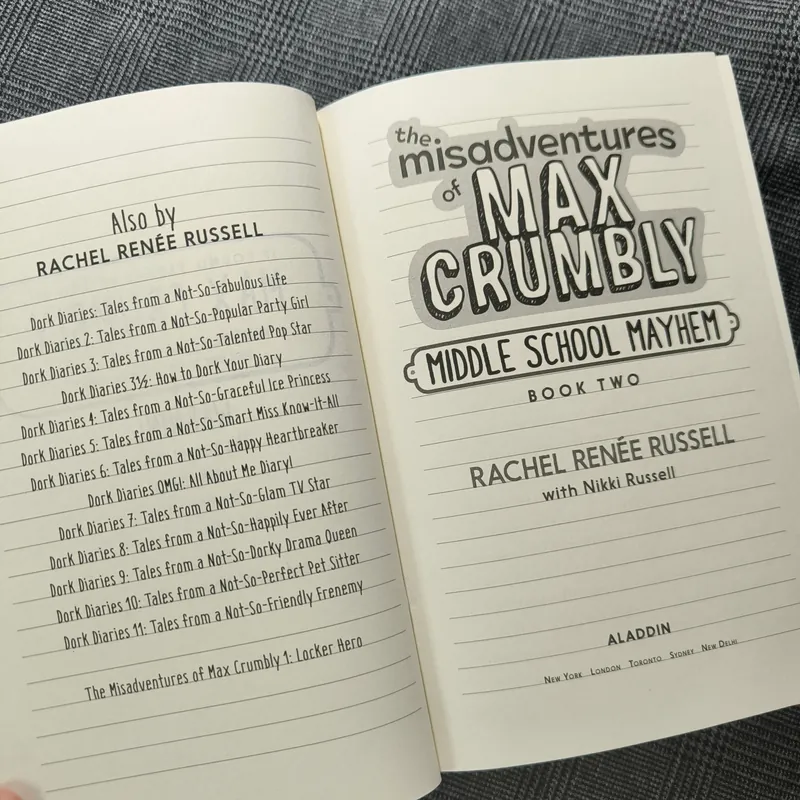 Also by
RACHEL RENÉE RUSSELL
Dork Diaries: Tales from a Not-So-Fabulous Life
Dork Diaries 2: Tales from a Not-So-Popular Party Girl
Dork Diaries 3: Tales from a Not-So-Talented Pop Star
Dork Diaries 3½: How to Dork Your Diary
Dork Diaries 4: Tales from a Not-So-Graceful Ice Princess
Dork Diaries 5: Tales from a Not-So-Smart Miss Know-It-All
Dork Diaries 6: Tales from a Not-So-Happy Heartbreaker
Dork Diaries OMG!: All About Me Diary!
Dork Diaries 7: Tales from a Not-So-Glam TV Star
Dork Diaries 8: Tales from a Not-So-Happily Ever After
Dork Diaries 9: Tales from a Not-So-Dorky Drama Queen
Dork Diaries 10: Tales from a Not-So-Perfect Pet Sitter
Dork Diaries 11: Tales from a Not-So-Friendly Frenemy
The Misadventures of Max Crumbly 1: Locker Hero
the
misadventures
of MAX
CRUMBLY
MIDDLE SCHOOL MAYHEM
BOOK TWO
RACHEL RENÉE RUSSELL
with Nikki Russell
ALADDIN
New York London Toronto Sydney New Delhi